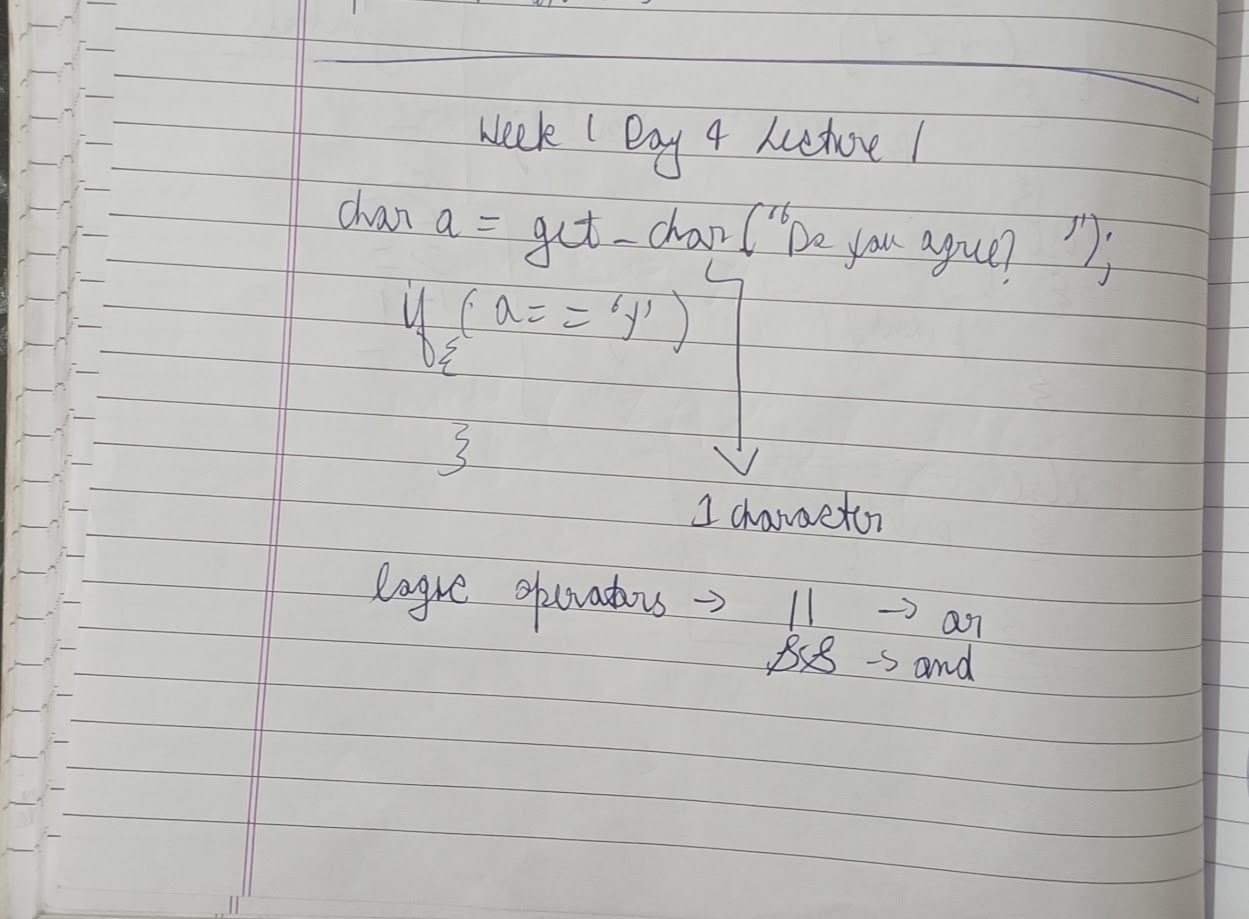 Week 1 Day 4 Lecture 1
char a = get_char("Do you agree? ");
if (a == 'y')
{
}
1 character
logic operators → || → or
&& → and